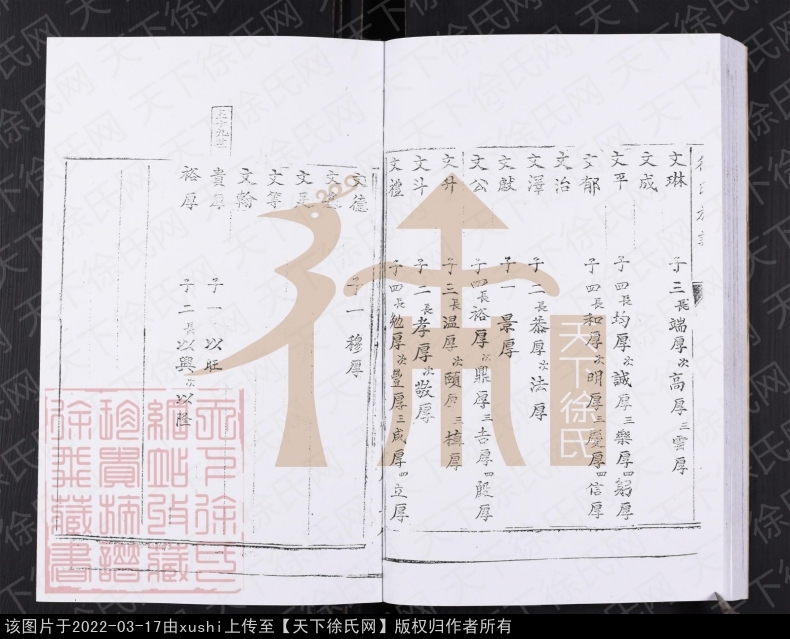 文琳 子三長端厚次高厚三雲厚
文成
文平 子四長均厚次誠厚三樂厚四躬厚
文郁 子四長和厚次明厚三 厚四信厚
文治
文澤 子二長恭厚次法厚
文獻 子一景厚
文公 子四長裕厚次鼎厚三吉厚四殷厚
文升 子三長温厚次頤厚三植厚
文斗 子二長孝厚次敬厚
文禮 子四長勉厚次豐厚三咸厚四立厚
文德 子一穆厚
文
文
文
文翰
五十九世
貴厚 子一以旺
裕厚 子二長以興次以隆
天下徐氏
该图片于2022-03-17由xushi上传至【天下徐氏网】版权归作者所有